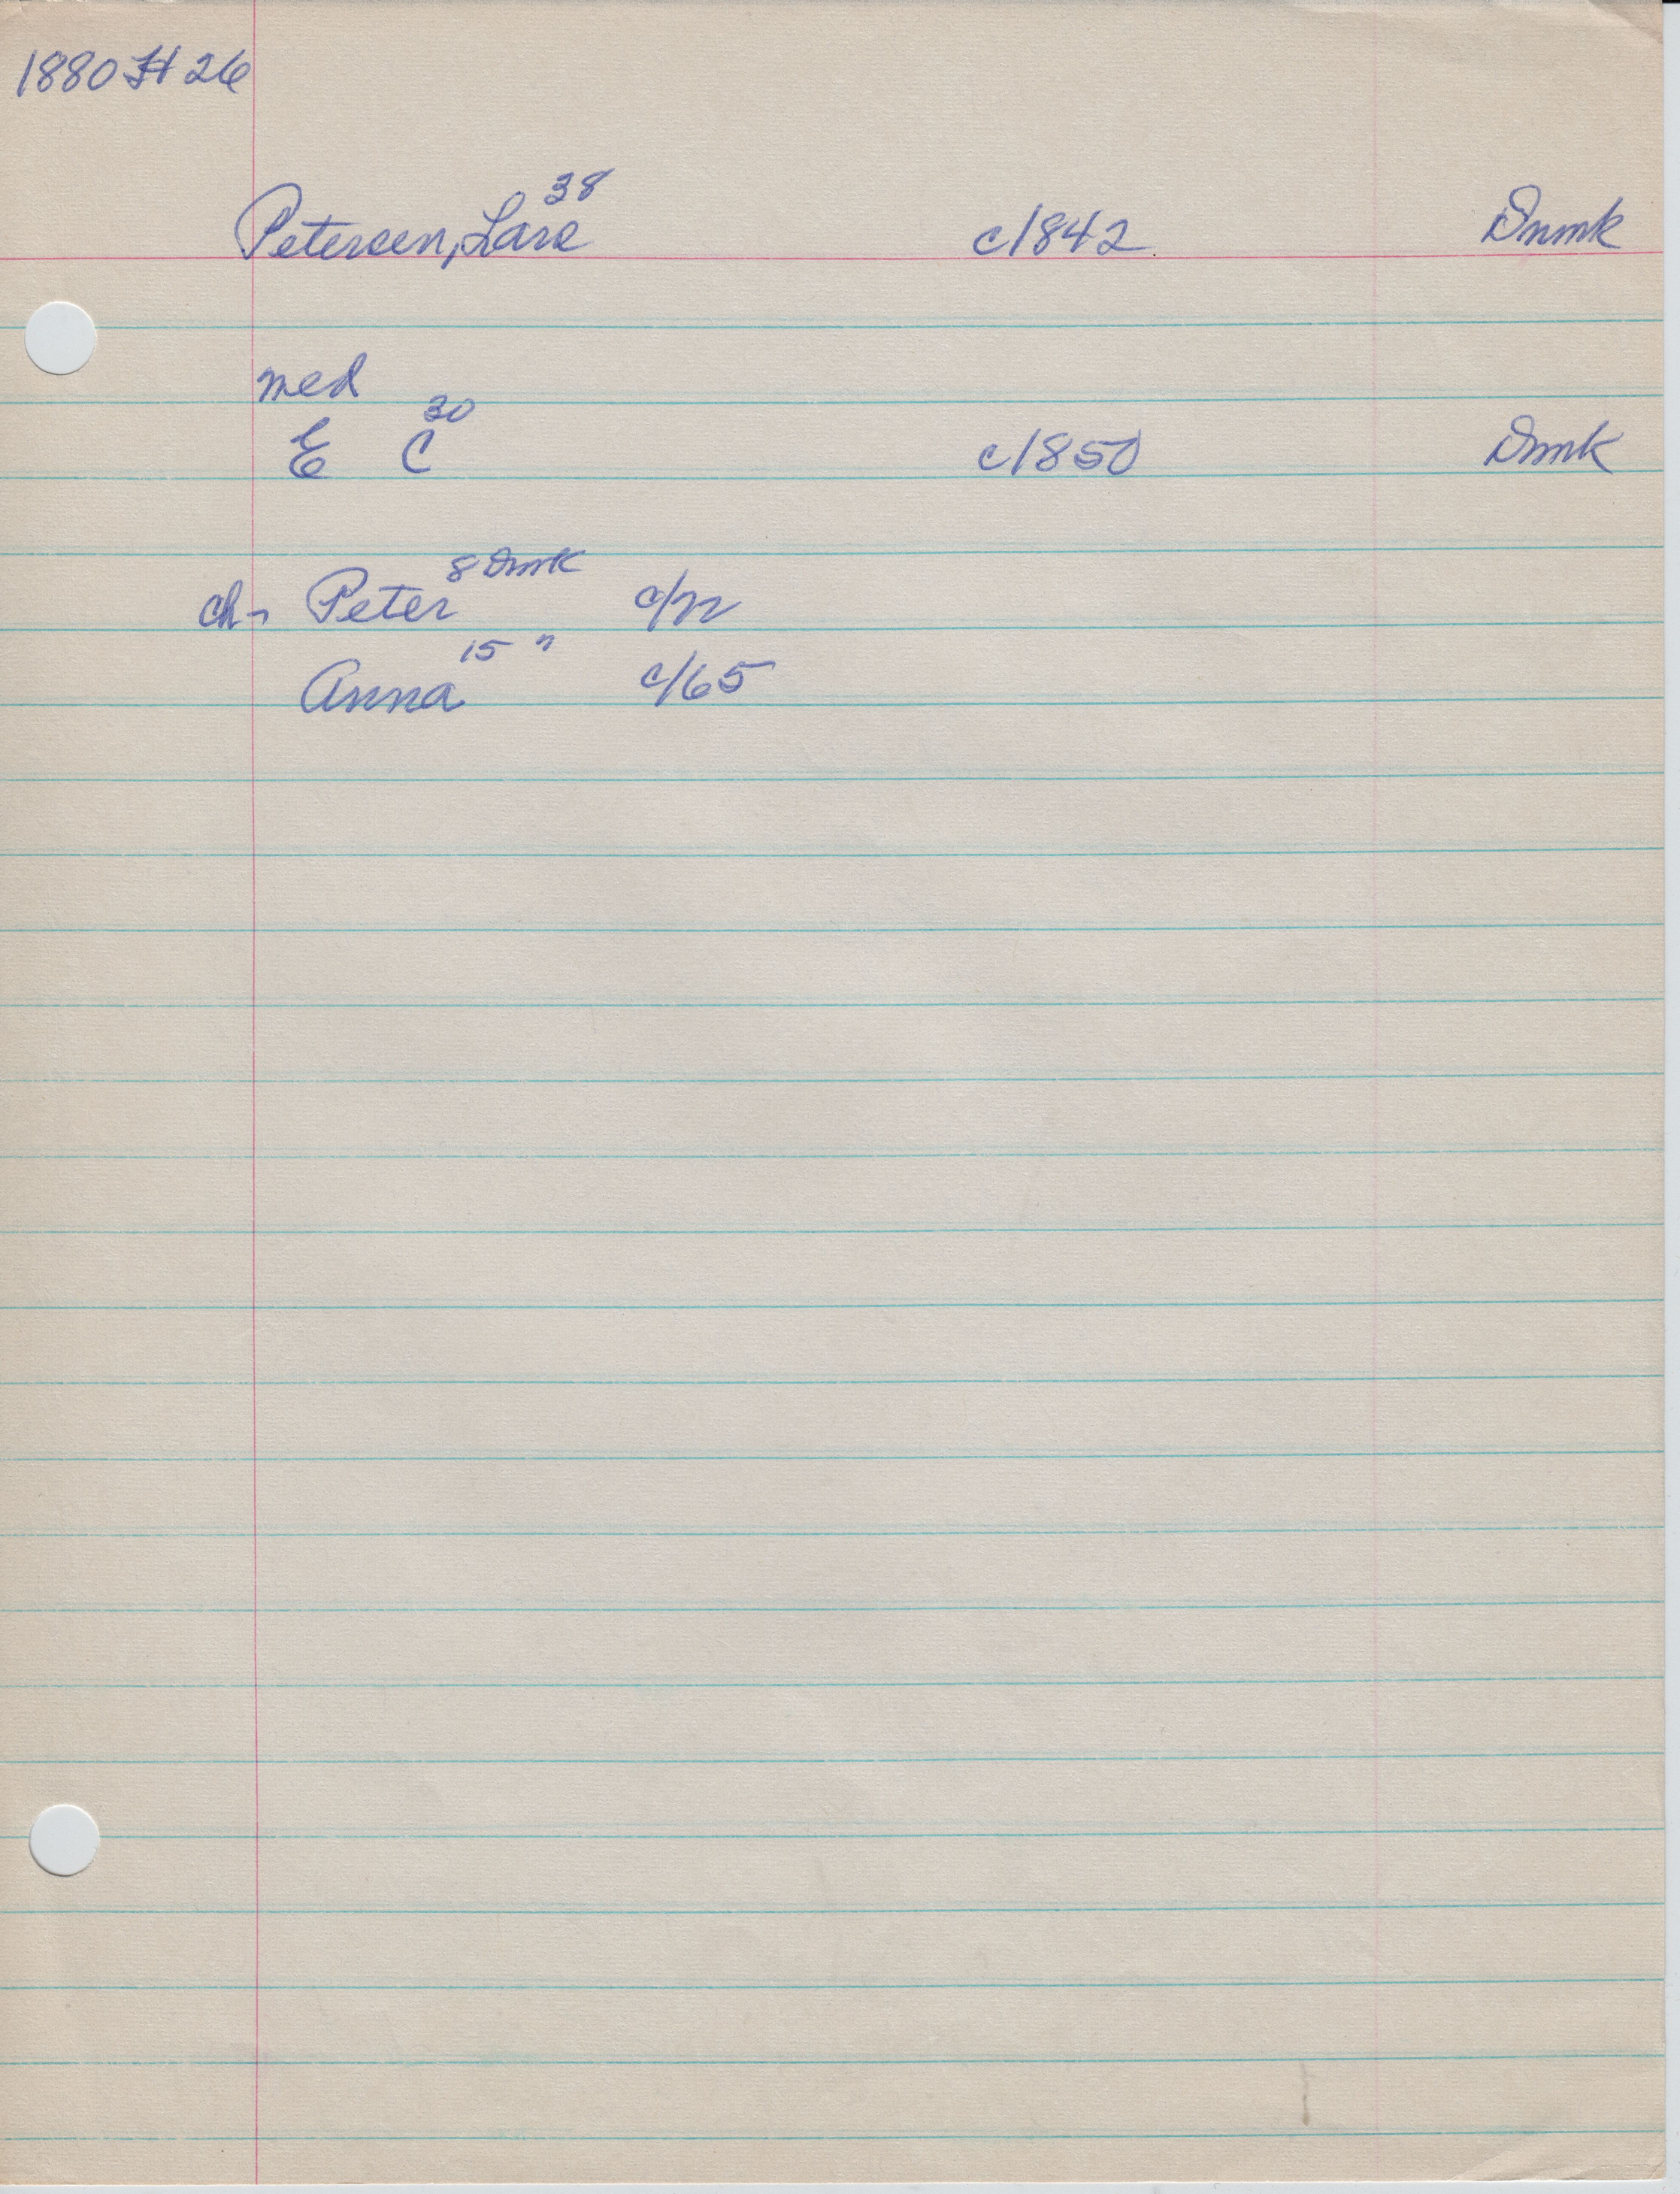 1880 H 26
Petersen, Lars 38 c/1842 Dnmk
med
E C 30 c/1850 Dnmk
ch- Peter 8 Dnmk c/72
Anna 15 " c/65